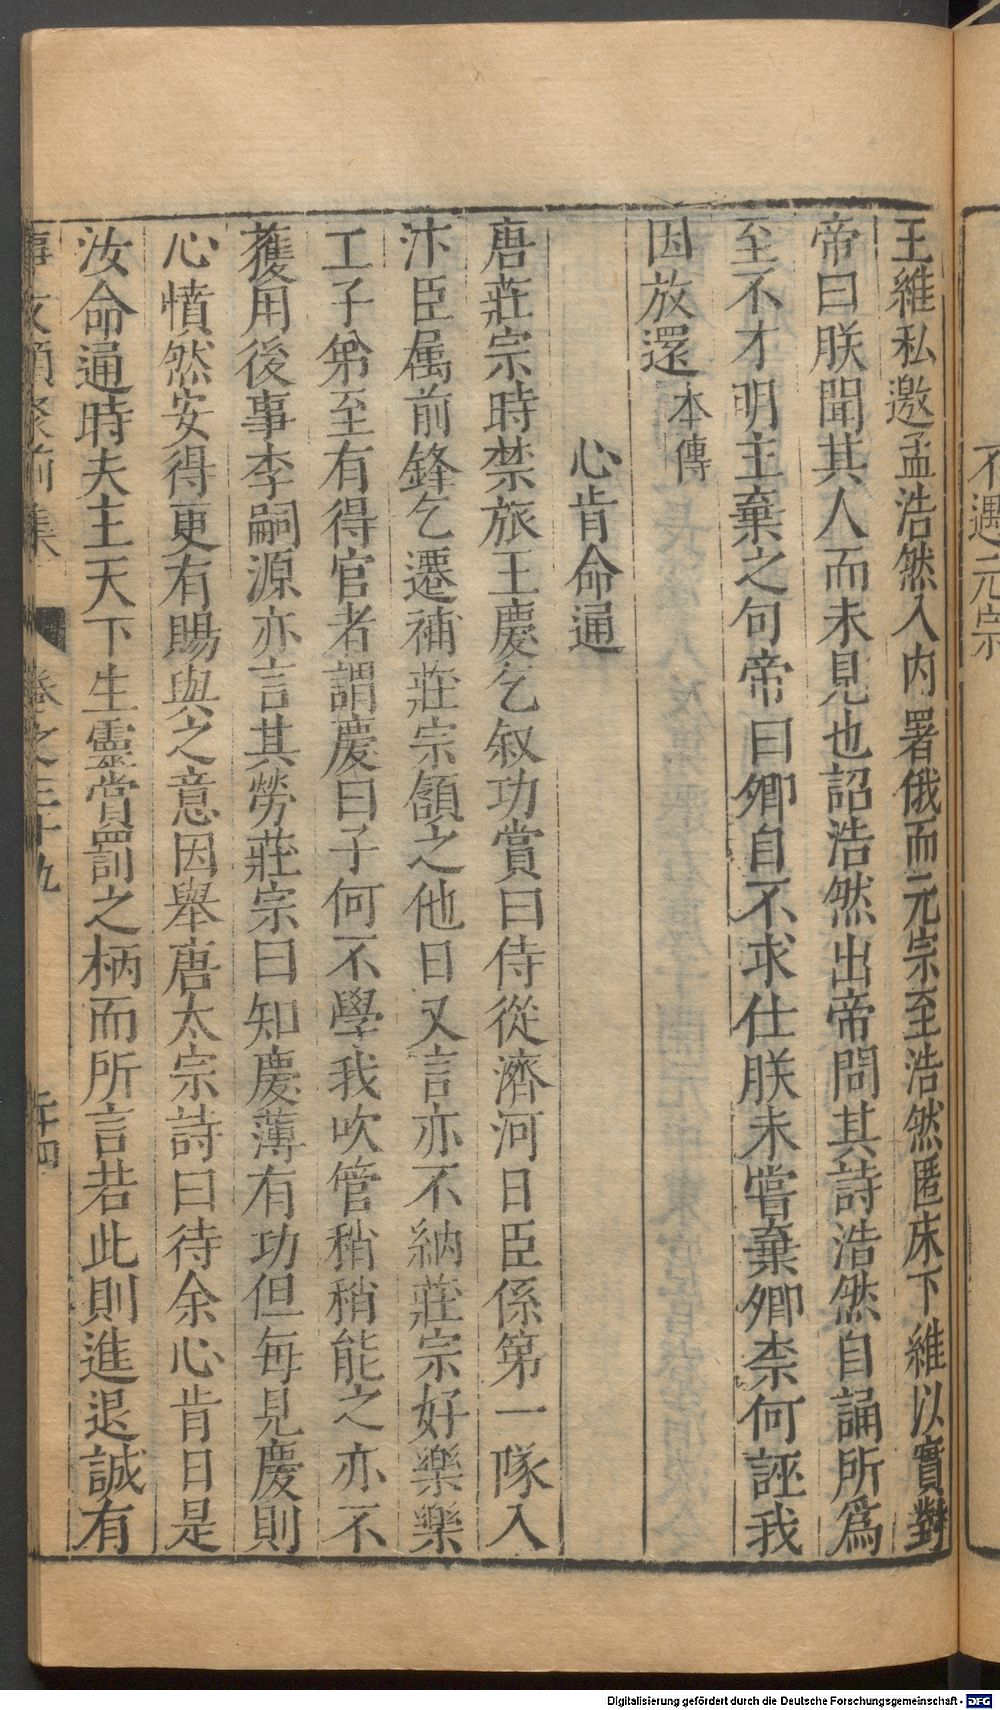 不遇元宗
王維私邀孟浩然入内署俄而元宗至浩然匿床下維以實對
帝曰朕聞其人而未見也詔浩然出帝問其詩浩然自誦所爲
至不才明主棄之句帝曰卿自不求仕朕未嘗棄卿柰何誣我
因放還本傳
心肯命通
唐莊宗時禁旅王慶乞叙功賞曰侍從濟河日臣係第一隊入
汴臣属前鋒乞遷補莊宗頷之他日又言亦不納莊宗好樂樂
工子弟至有得官者謂慶曰子何不學我吹管稍稍能之亦不
獲用後事李嗣源亦言其勞莊宗曰知慶薄有功但每見慶則
心憤然安得更有賜與之意因舉唐太宗詩曰待余心肯日是
汝命通時夫主天下生靈賞罰之柄而所言若此則進退誠有
事文類聚前集 卷之三十九 五十四
Digitalisierung gefördert durch die Deutsche Forschungsgemeinschaft - DFG